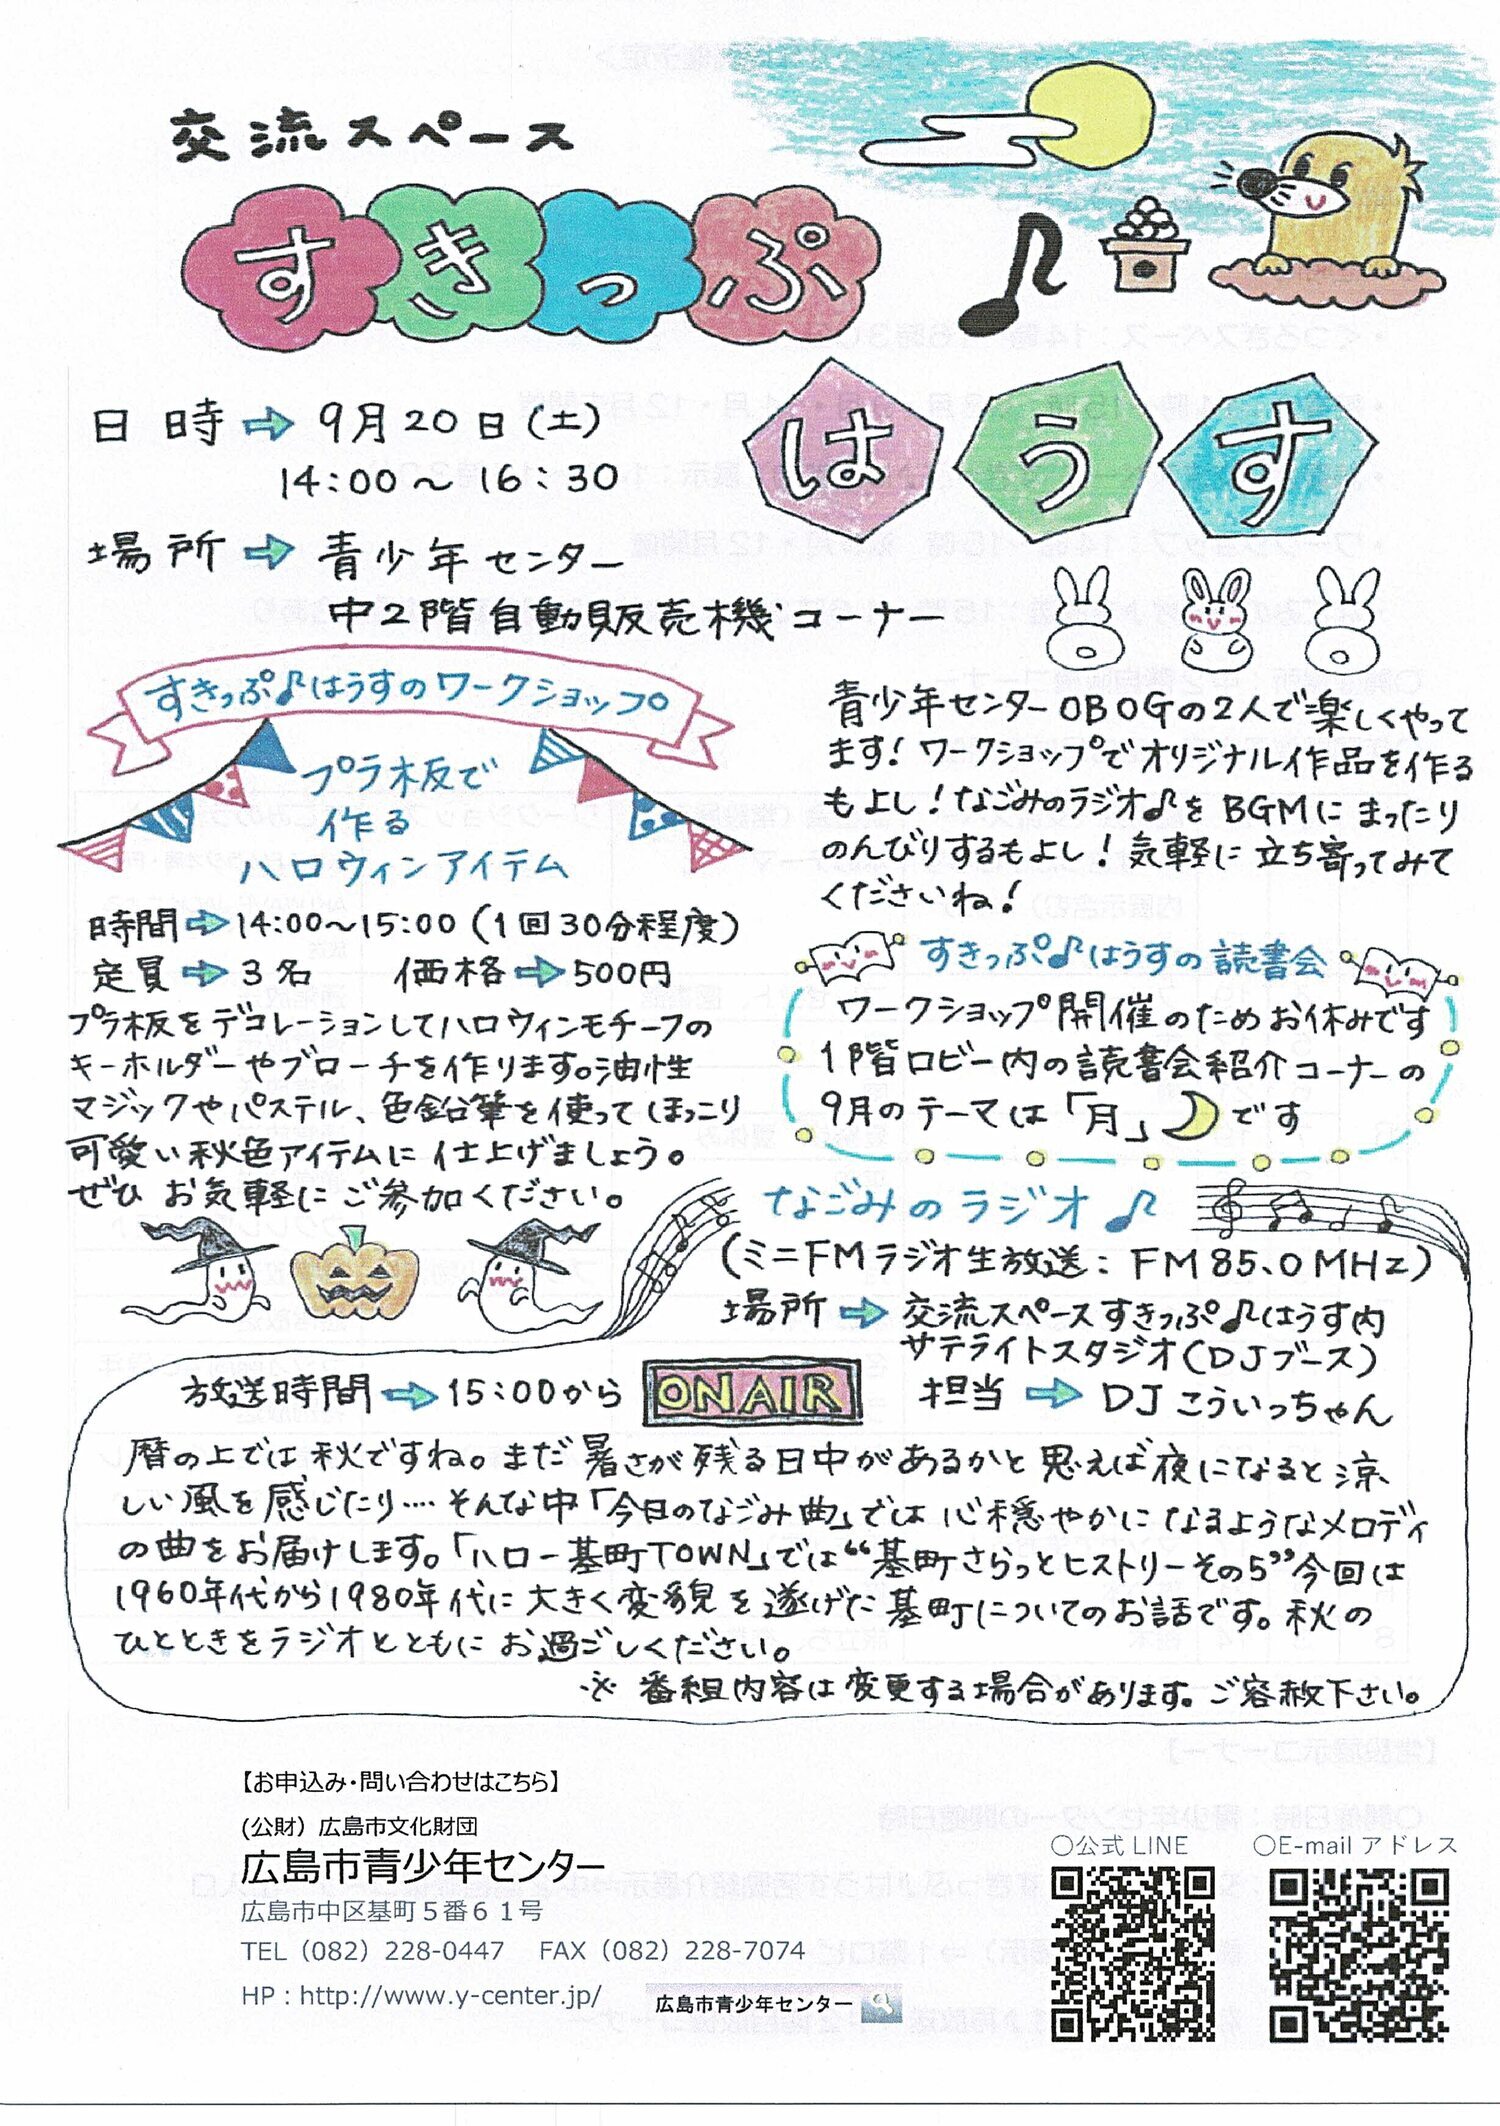 交流スペース
すきっぷ♪
はうす
日時➡9月20日(土)
14:00～16:30
場所➡青少年センター
中2階自動販売機コーナー
すきっぷ♪はうすのワークショップ
プラ板で
作る
ハロウィンアイテム
時間➡14:00～15:00(1回30分程度)
定員➡3名 価格➡500円
プラ板をデコレーションしてハロウィンモチーフの
キーホルダーやブローチを作ります。油性
マジックやパステル、色鉛筆を使ってほっこり
可愛い秋色アイテムに仕上げましょう。
ぜひお気軽にご参加ください。
青少年センターOBOGの2人で楽しくやって
ます!ワークショップでオリジナル作品を作る
もよし!なごみのラジオ♪をBGMにまったり
のんびりするもよし!気軽に立ち寄ってみて
くださいね!
すきっぷ♪はうすの読書会
ワークショップ開催のためお休みです
1階ロビー内の読書会紹介コーナーの
9月のテーマは「月」です
なごみのラジオ♪
(ミニFMラジオ生放送:FM85.0MHz)
場所➡交流スペースすきっぷ♪はうす内
サテライトスタジオ(DJブース)
放送時間➡15:00から ON AIR 担当➡DJこういっちゃん
暦の上では秋ですね。まだ暑さが残る日中があるかと思えば夜になると涼
しい風を感じたり…そんな中「今日のなごみ曲」では心穏やかになるようなメロディ
の曲をお届けします。「ハロー基町TOWN」では“基町さらっとヒストリーその5”今回は
1960年代から1980年代に大きく変貌を遂げた基町についてのお話です。秋の
ひとときをラジオとともにお過ごしください。
※番組内容は変更する場合があります。ご容赦下さい。
【お申込み・問い合わせはこちら】
(公財)広島市文化財団
広島市青少年センター
広島市中区基町5番61号
TEL(082)228-0447 FAX(082)228-7074
HP:http://www.y-center.jp/ 広島市青少年センター
○公式LINE
○E-mailアドレス